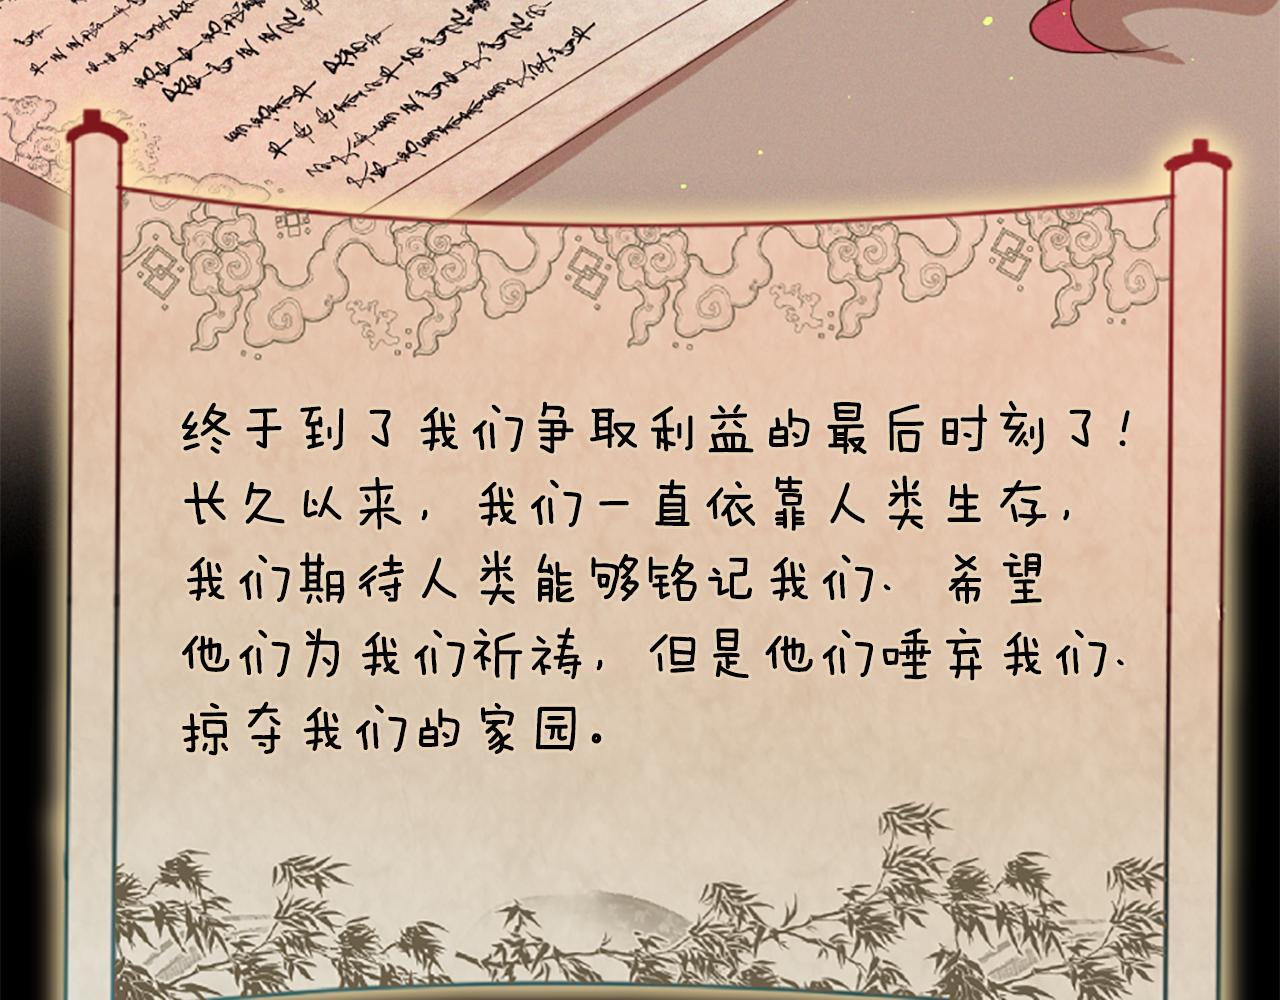 终于到了我们争取利益的最后时刻了！
长久以来，我们一直依靠人类生存，
我们期待人类能够铭记我们、希望
他们为我们祈祷，但是他们唾弃我们、
掠夺我们的家园。